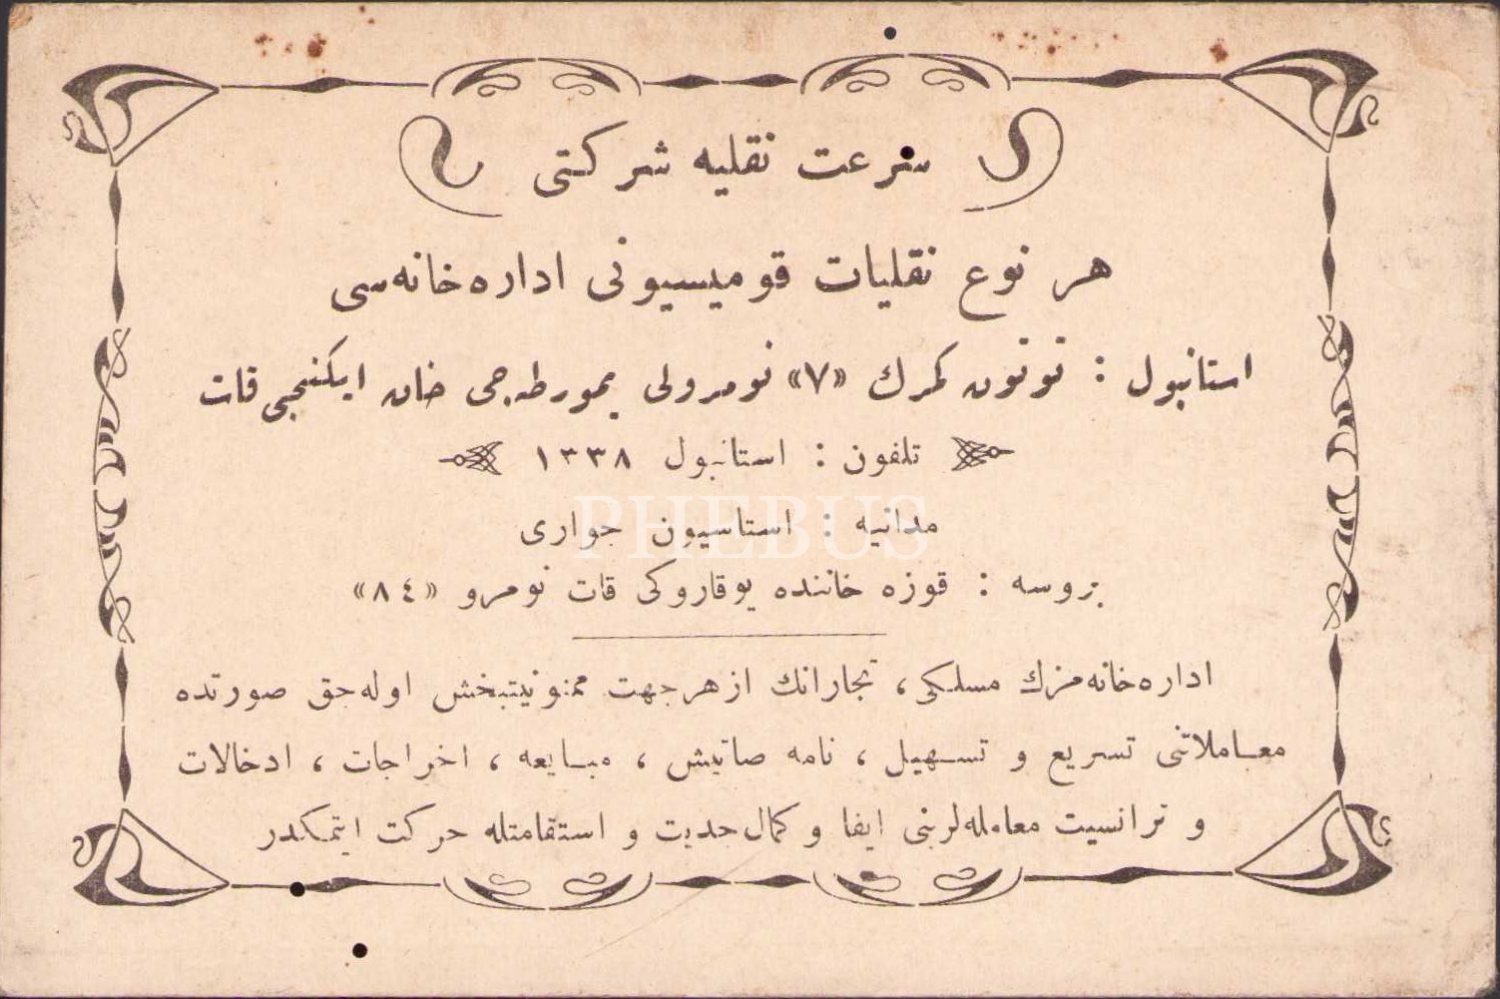 سرعت نقلیه شرکتی
هر نوع نقلیات قومیسیونی اداره‌خانه‌سی
استانبول : توتون کمرك «۷» نومرولی یمورطه‌جی خان ایکنجی قات
تلفون : استانبول ۱۳۳۸
PHEBUS
مدانیه : استاسیون جواری
بروسه : قوزه خاننده یوقاروکی قات نومرو «۸٤»
اداره‌خانه‌مزك مسلکی ، تجارانك از هر جهت ممنونیتبخش اوله‌جق صورتده
معـاملاتنی تسریع و تسـهیل ، نامه صاتیش ، مبـایعه ، اخراجات ، ادخالات
و ترانسیت معامله‌لرینی ایفا و کمال جدیت و استقامتله حرکت ایتمکدر